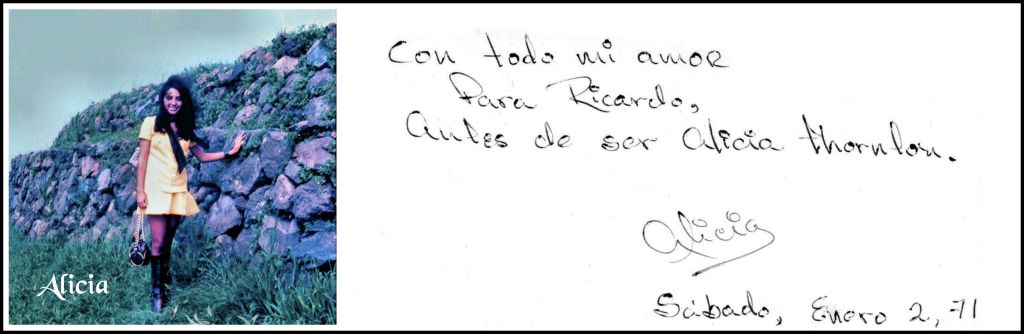 Alicia
Con todo mi amor
Para Ricardo,
Antes de ser Alicia Thornton.
Alicia
Sábado, Enero 2, 71